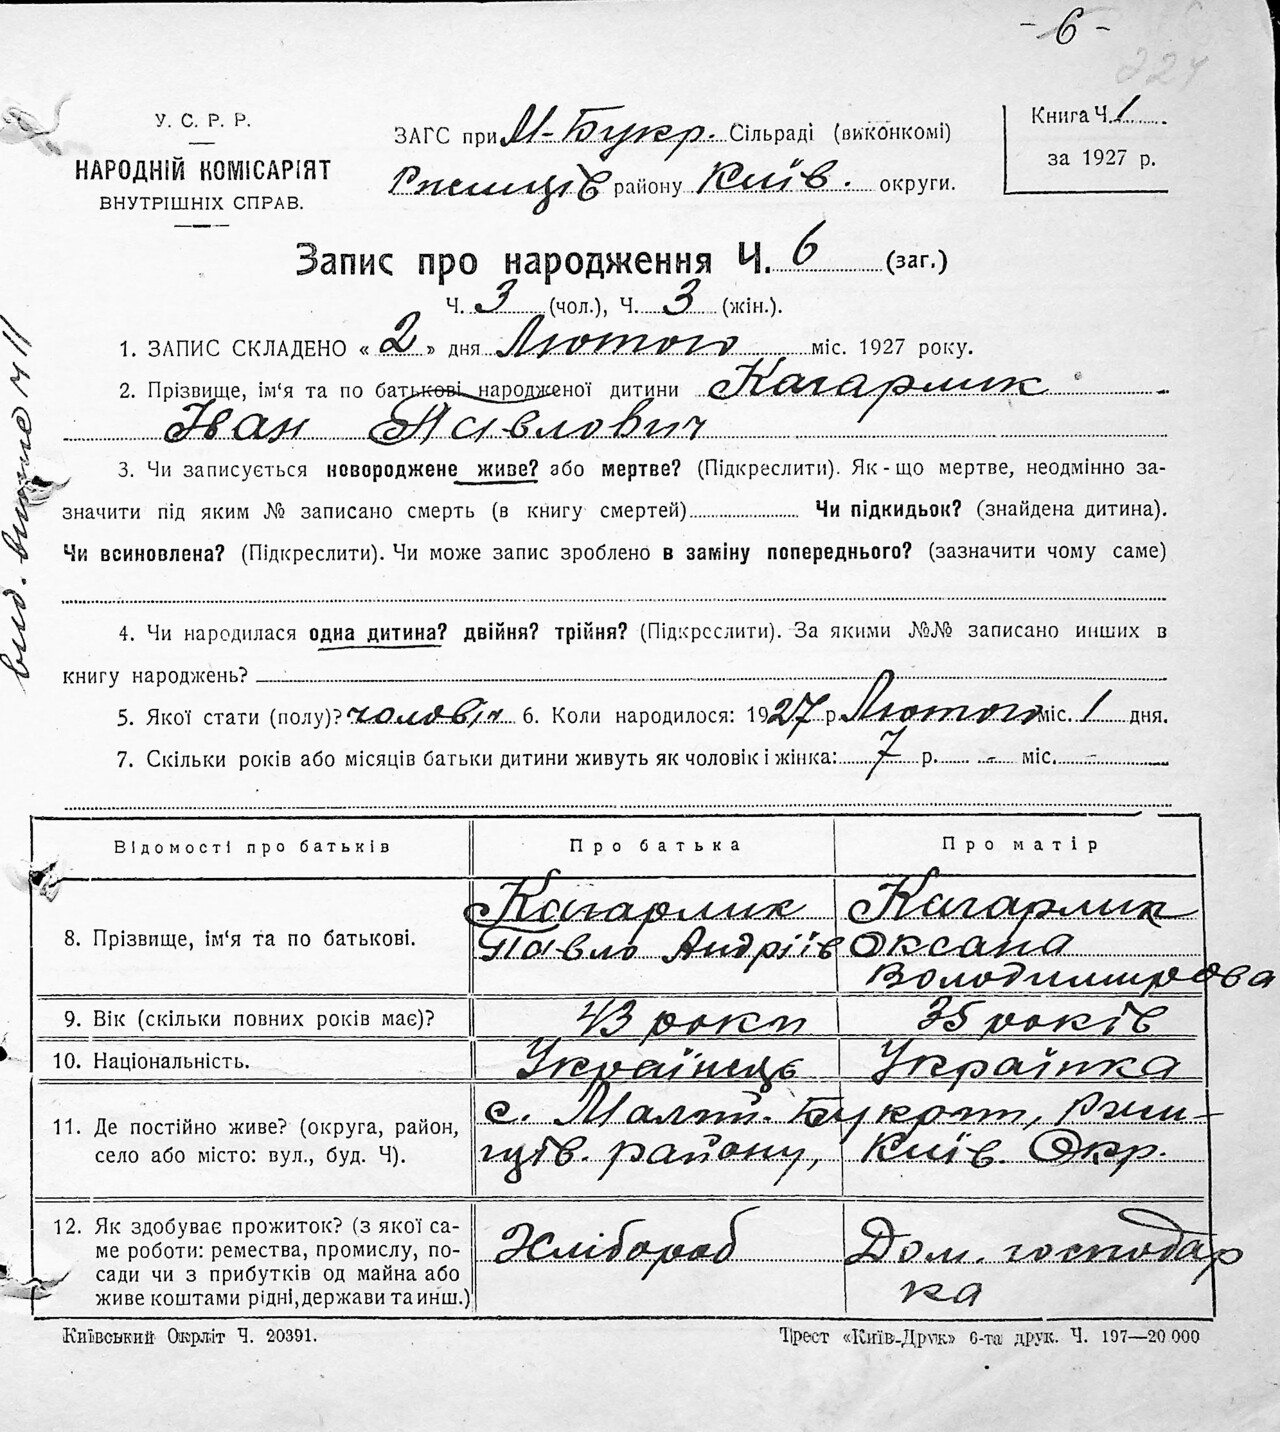 - 6 -
224
У. С. Р. Р.
НАРОДНІЙ КОМІСАРІЯТ
ВНУТРІШНІХ СПРАВ.
ЗАГС при М-Букр. Сільраді (виконкомі)
Ржищів району Київ. округи.
Книга Ч. 1
за 1927 р.
Запис про народження Ч. 6 (заг.)
Ч. 3 (чол.), Ч. 3 (жін.).
1. ЗАПИС СКЛАДЕНО « 2 » дня Лютого міс. 1927 року.
2. Прізвище, ім‘я та по батькові народженої дитини Кагарлик
Іван Павлович
3. Чи записується новороджене живе? або мертве? (Підкреслити). Як-що мертве, неодмінно за-
значити під яким № записано смерть (в книгу смертей) Чи підкидьок? (знайдена дитина).
Чи всиновлена? (Підкреслити). Чи може запис зроблено в заміну попереднього? (зазначити чому саме)
4. Чи народилася одна дитина? двійня? трійня? (Підкреслити). За якими №№ записано инших в
книгу народжень?
5. Якої стати (полу)? чоловіч 6. Коли народилося: 1927 р. Лютого міс. 1 дня.
7. Скільки років або місяців батьки дитини живуть як чоловік і жінка: 7 р. - міс. -
Відомості про батьків Про батька Про матір
8. Прізвище, ім‘я та по батькові.
Кагарлик
Павло Андріїв
Кагарлик
Оксана
Володимирова
9. Вік (скільки повних років має)? 43 роки 35 років
10. Національність. Українець Українка
11. Де постійно живе? (округа, район,
село або місто: вул., буд. Ч).
с. Малий. Букрин, Ржи-
щів. району, Київ. Окр.
12. Як здобуває прожиток? (з якої са-
ме роботи: ремества, промислу, по-
сади чи з прибутків од майна або
живе коштами рідні, держави та инш.)
Хлібороб
Дом. господар
ка
Київський Окрліт Ч. 20391.
Трест «Київ-Друк» 6-та друк. Ч. 197—20 000